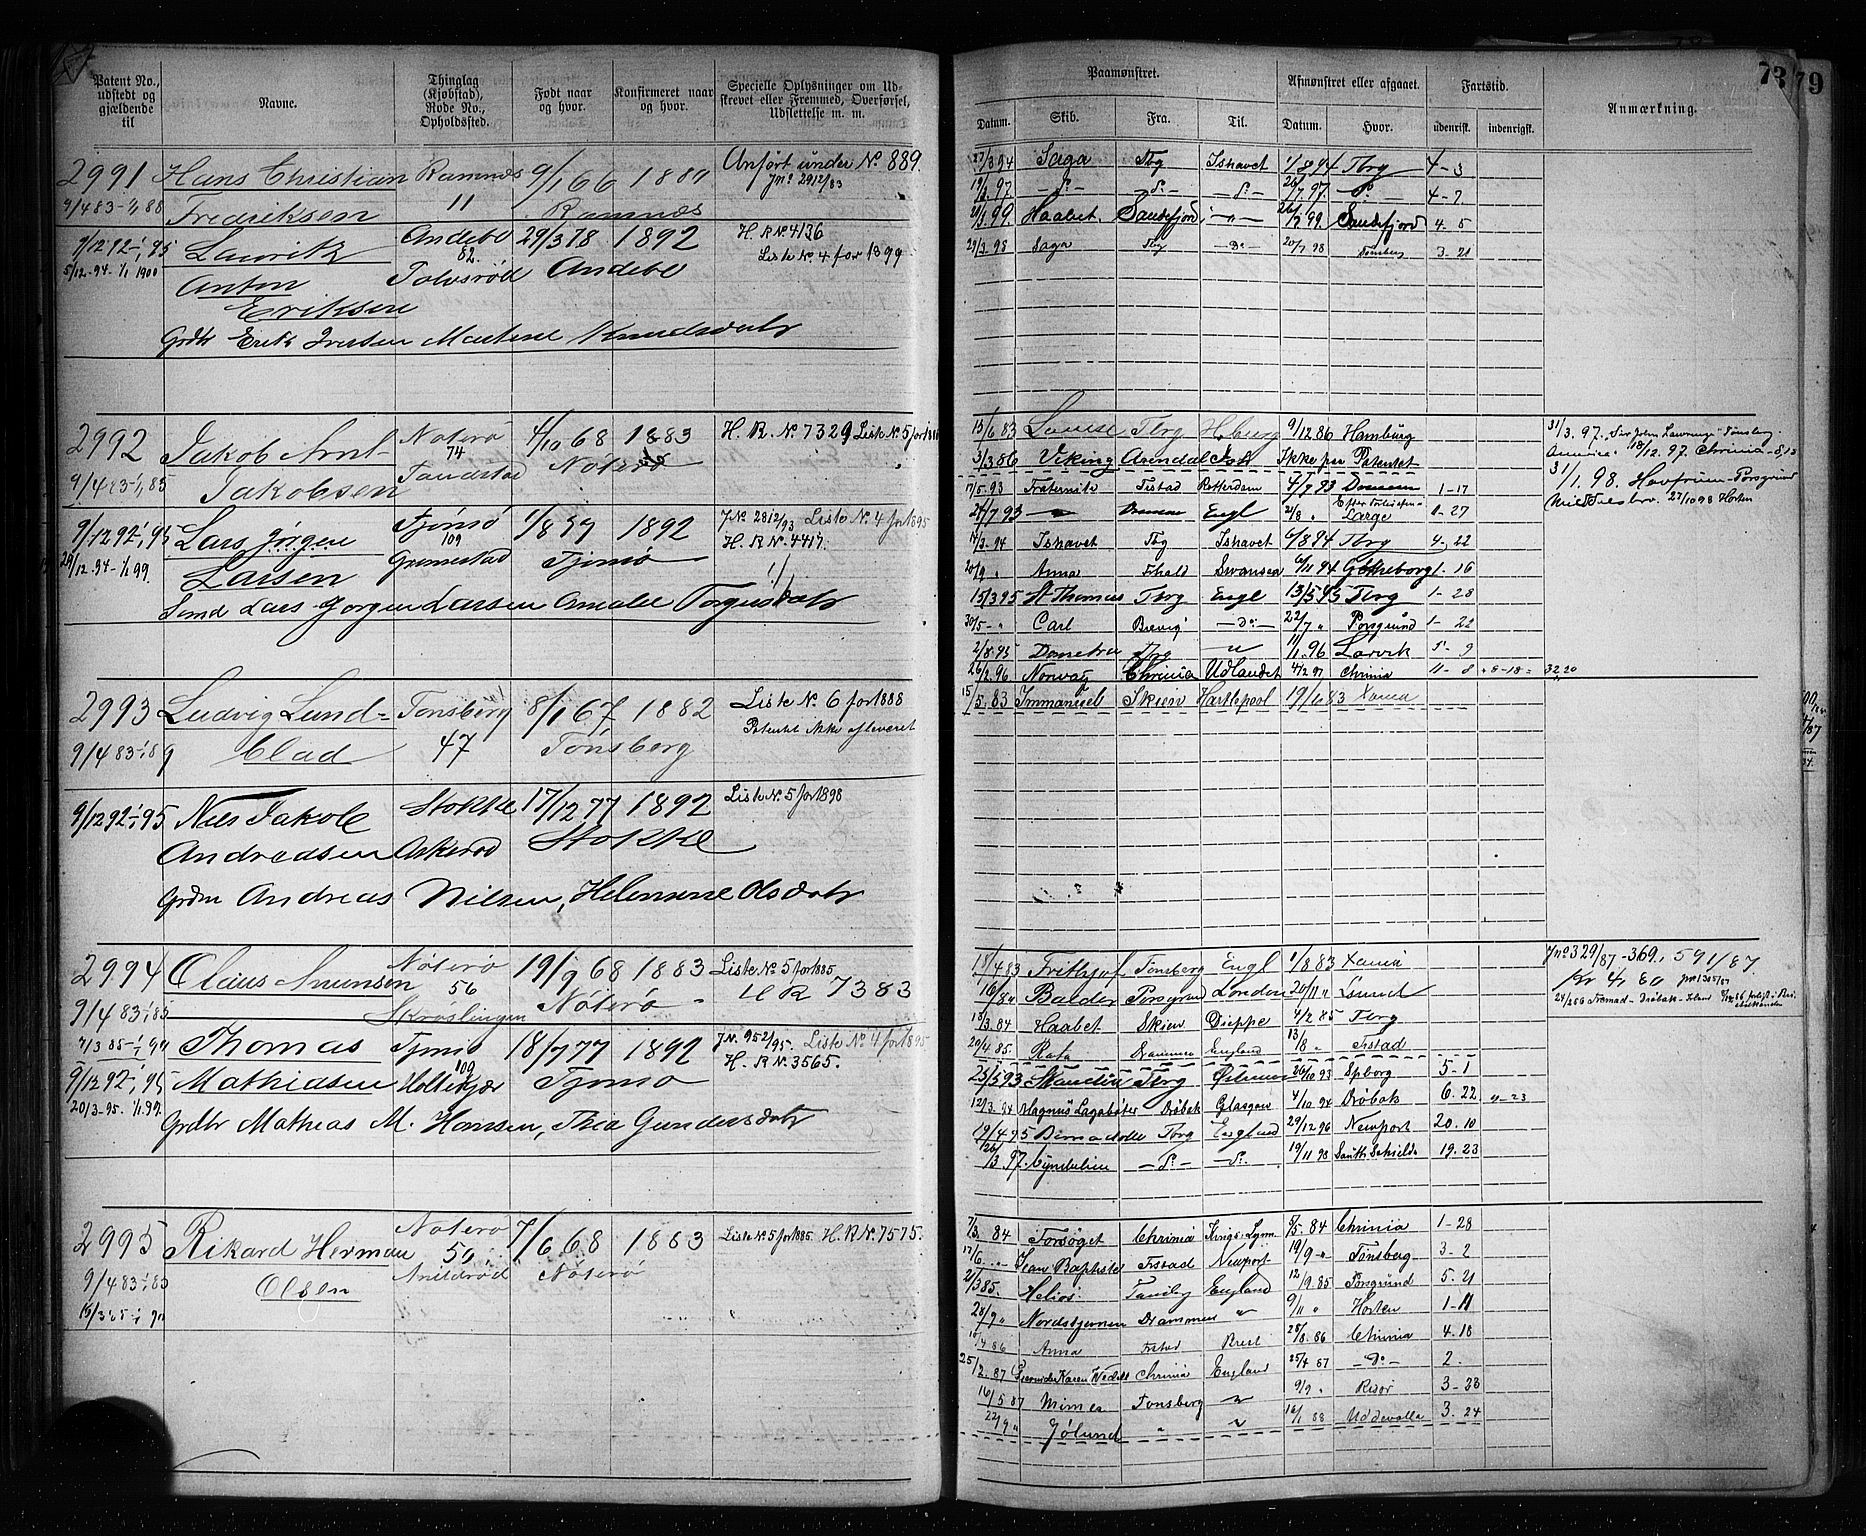 73 79
Patent No., udstedt og gjældende til
Navne.
Thinglag (Kjøbstad), Rode No., Opholdssted.
Født naar og hvor.
Konfirmeret naar og hvor.
Specielle Oplysninger om Udskrevet eller Fremmed, Overførsel, Udslettelse m. m.
Paamønstret.
Afmønstret eller afgaaet.
Fartstid.
Anmærkning.
Datum. Skib. Fra. Til. Datum. Hvor. udenrigsk. indenrigsk.
2991 Hans Christian Ramnes 9/1 66 1880 Anført under No. 889
Jno 2912/83
9/4 83-1/1 88 Fredriksen 11 Ramnes
9/12 92-1/1 95 Laurits Andebo 29/3 78 1892 H. R No 4136
5/12-94-1/1 1900 82 Liste No 4 for 1899
Anton Andebo
Eriksen
Grdbr Erik Iversen Martine Knudsdatr
27/3 94 Saga Tbg Ishavet 1/8 94 Tbrg 4-3
19/2 97 -Do- -Do- -Do- 26/7 97 -Do- 4-7
20/3 99 Haabet Sandefjord -"- 26/7 99 Sandefjord 4.5
29/3.98 Saga Tbg -Do- 20/7 98 Tønsberg 3-21
2992 Jakob Arnt Nøterø 4/10 68 1883 H. R. No 7329 Liste No 5 for 188
74
9/4 83-1/1 85 Jakobsen Nøterø
9/12 92-1/1 95 Lars Jørgen Tjømø 1/8 77 1892 Jno 2812/93 Liste No 4 for 1895
109 H. R No 4417.
29/12-94-1/1 99. Larsen Grimestad Tjømø
Lars Jørgen Larsen Amalie Torgersdatr
15/6 83 Louise Tbrg Hburg 9/12 86 Hamburg
3/3 86 Viking Arendal Ish Ikke paa Patentet
17/5.93 Fraternite Fstad Rotterdam 4/7 93 1-17
21/7 93 Engl 2/8 " 0-27
14/3-94 Ishavet Tbg Ishavet 6/8 94 Tbrg 4-22
20/9 " Anna Fhald Swansea 6/11 94 Gøtheborg 1-16
15/3 95 St Thomas Tbrg Engl 13/5 95 Tbrg 1-28
30/5-" Carl Brevig -Do- 22/7 " Porsgrund 1-22
2/8.95 Tbrg " 11/1 96 Larvik 5-9
26/2.96 Norway Chrinia Udlandet 4/2 97 Chrinia 11-8 +8-18= 32,20
31/3.97. Sir John Lawrence Tønsberg
America 18/12.97. Chrinia-8,13
31/1.98. Havfruen-Porsgrund
27/10 98 Horten
2993 Ludvig Lund= Tønsberg 8/1 67 1882 Liste No. 6 for 1888
Patentet ikke afleveret
9/4 83-1/1 89 Clad 47 Tønsberg
15/5.83 Immanuel Skien Hartlepool 19/10 83 Xania
9/12 92-1/1 95 Nils Jakob Stokke 17/12 77 1892 Liste No. 5 for 1898
Andreasen Askerød Stokke
Grdm Andreas Nilsen, Helennene Olsdatr
2994 Claus Amunsen Nøterø 19/9 68 1883 Liste No. 5 for 1885
56 H R 7383
9/4 83-1/1 85 Skrøslingen Nøterø
7/3 85-1/1 90 Thomas Tjømø 18/7 77 1892 Jno. 952/95. Liste No 4 for 1895
109 H. R No. 3565.
9/12 92-1/1 95 Mathiasen Holtekjær Tjømø
20/3-95.1/1.97.
Grdbr Mathias M. Hansen, Thea Gundersdatr
18/4 83 Frithjof Tønsberg Engl 1/8 83 Xania
16/8 " Balder Porsgrund London 20/11 "
18/3.84 Haabet Skien Dieppe 4/2 85 Tbrg
20/4 85. Rota Drammen England 13/8 " Fstad
25/5 93 Tbrg 26/10 93 Spborg 5-1
12/3.94 Magnus Lagabøter Drøbak Glasgow 4/10 94 Drøbak 6.22 "-23
19/4 95 Tbrg England 29/12 96 Newport 20.10
26/3.97. -Do- -Do- 19/11 98 South Schields 19.23
Jno 329/87-369. 591/87.
Kr 4,80 Jno 1305/87
2995 Rikard Herman Nøterø 7/6 68 1883 Liste No 5 for 1885. H. R No. 7575.
50
9/4 83-1/1 85 Olsen Nøterø
19/3 85-1/1 90
7/3 84 Forsøget Chrinia Kings-Lynn 5/5.84 Chrinia 1-28
17/6. -" Jean Baptiste Fstad Newport 19/9-" Tønsberg 3-2
2/3 85. Helios England 12/9.85 Porsgrund 5.21
28/9 " Nordstjernen Drammen " 9/11 " Horten 1-11
Anna Fstad Brest 28/8.86 Chrinia 4.18
25/2.87 Karen Wedels Chrinia England 25/4 87 -Do- 2.
16/5 87 Mimer Tønsberg " 9/9 " Risør 3-23
22/9 " Jølund " " 16/1 88 Uddevalla 3.24